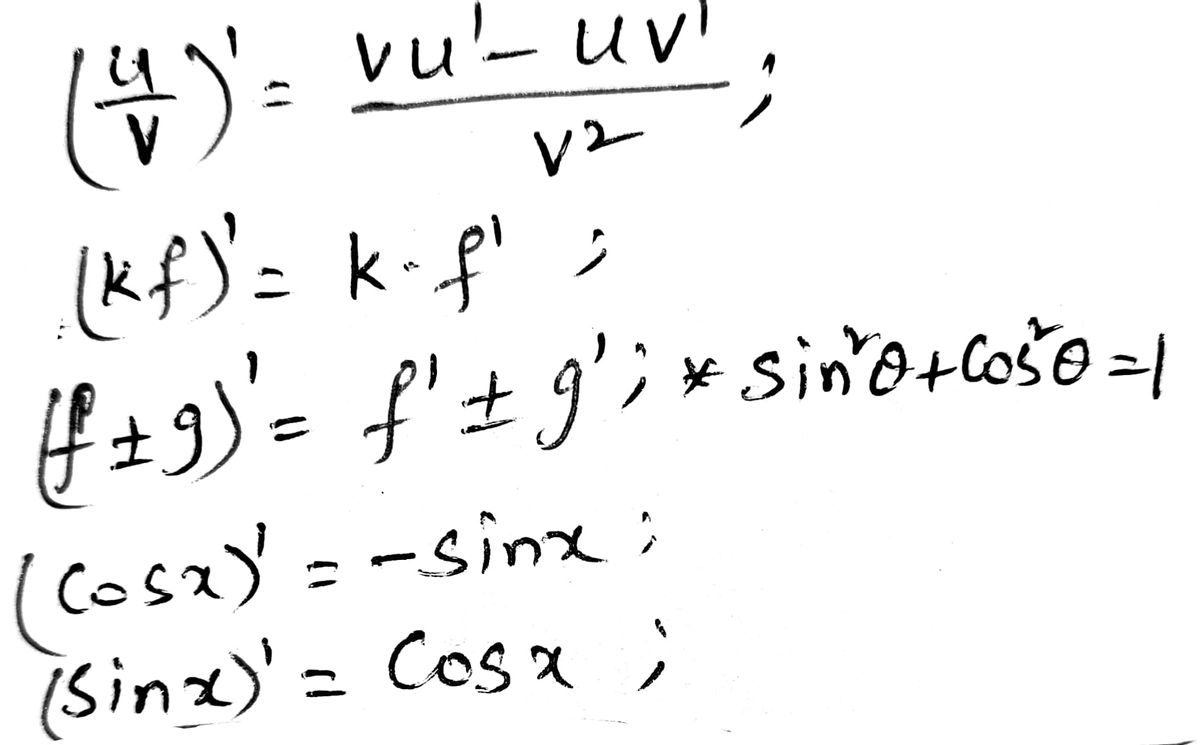 (u/v)' = (vu' - uv')/v² ;
(kf)' = k·f' ;
(f ± g)' = f' ± g' ; * sin²θ + Cos²θ = 1
(Cosx)' = -sinx ;
(Sinx)' = Cosx ;